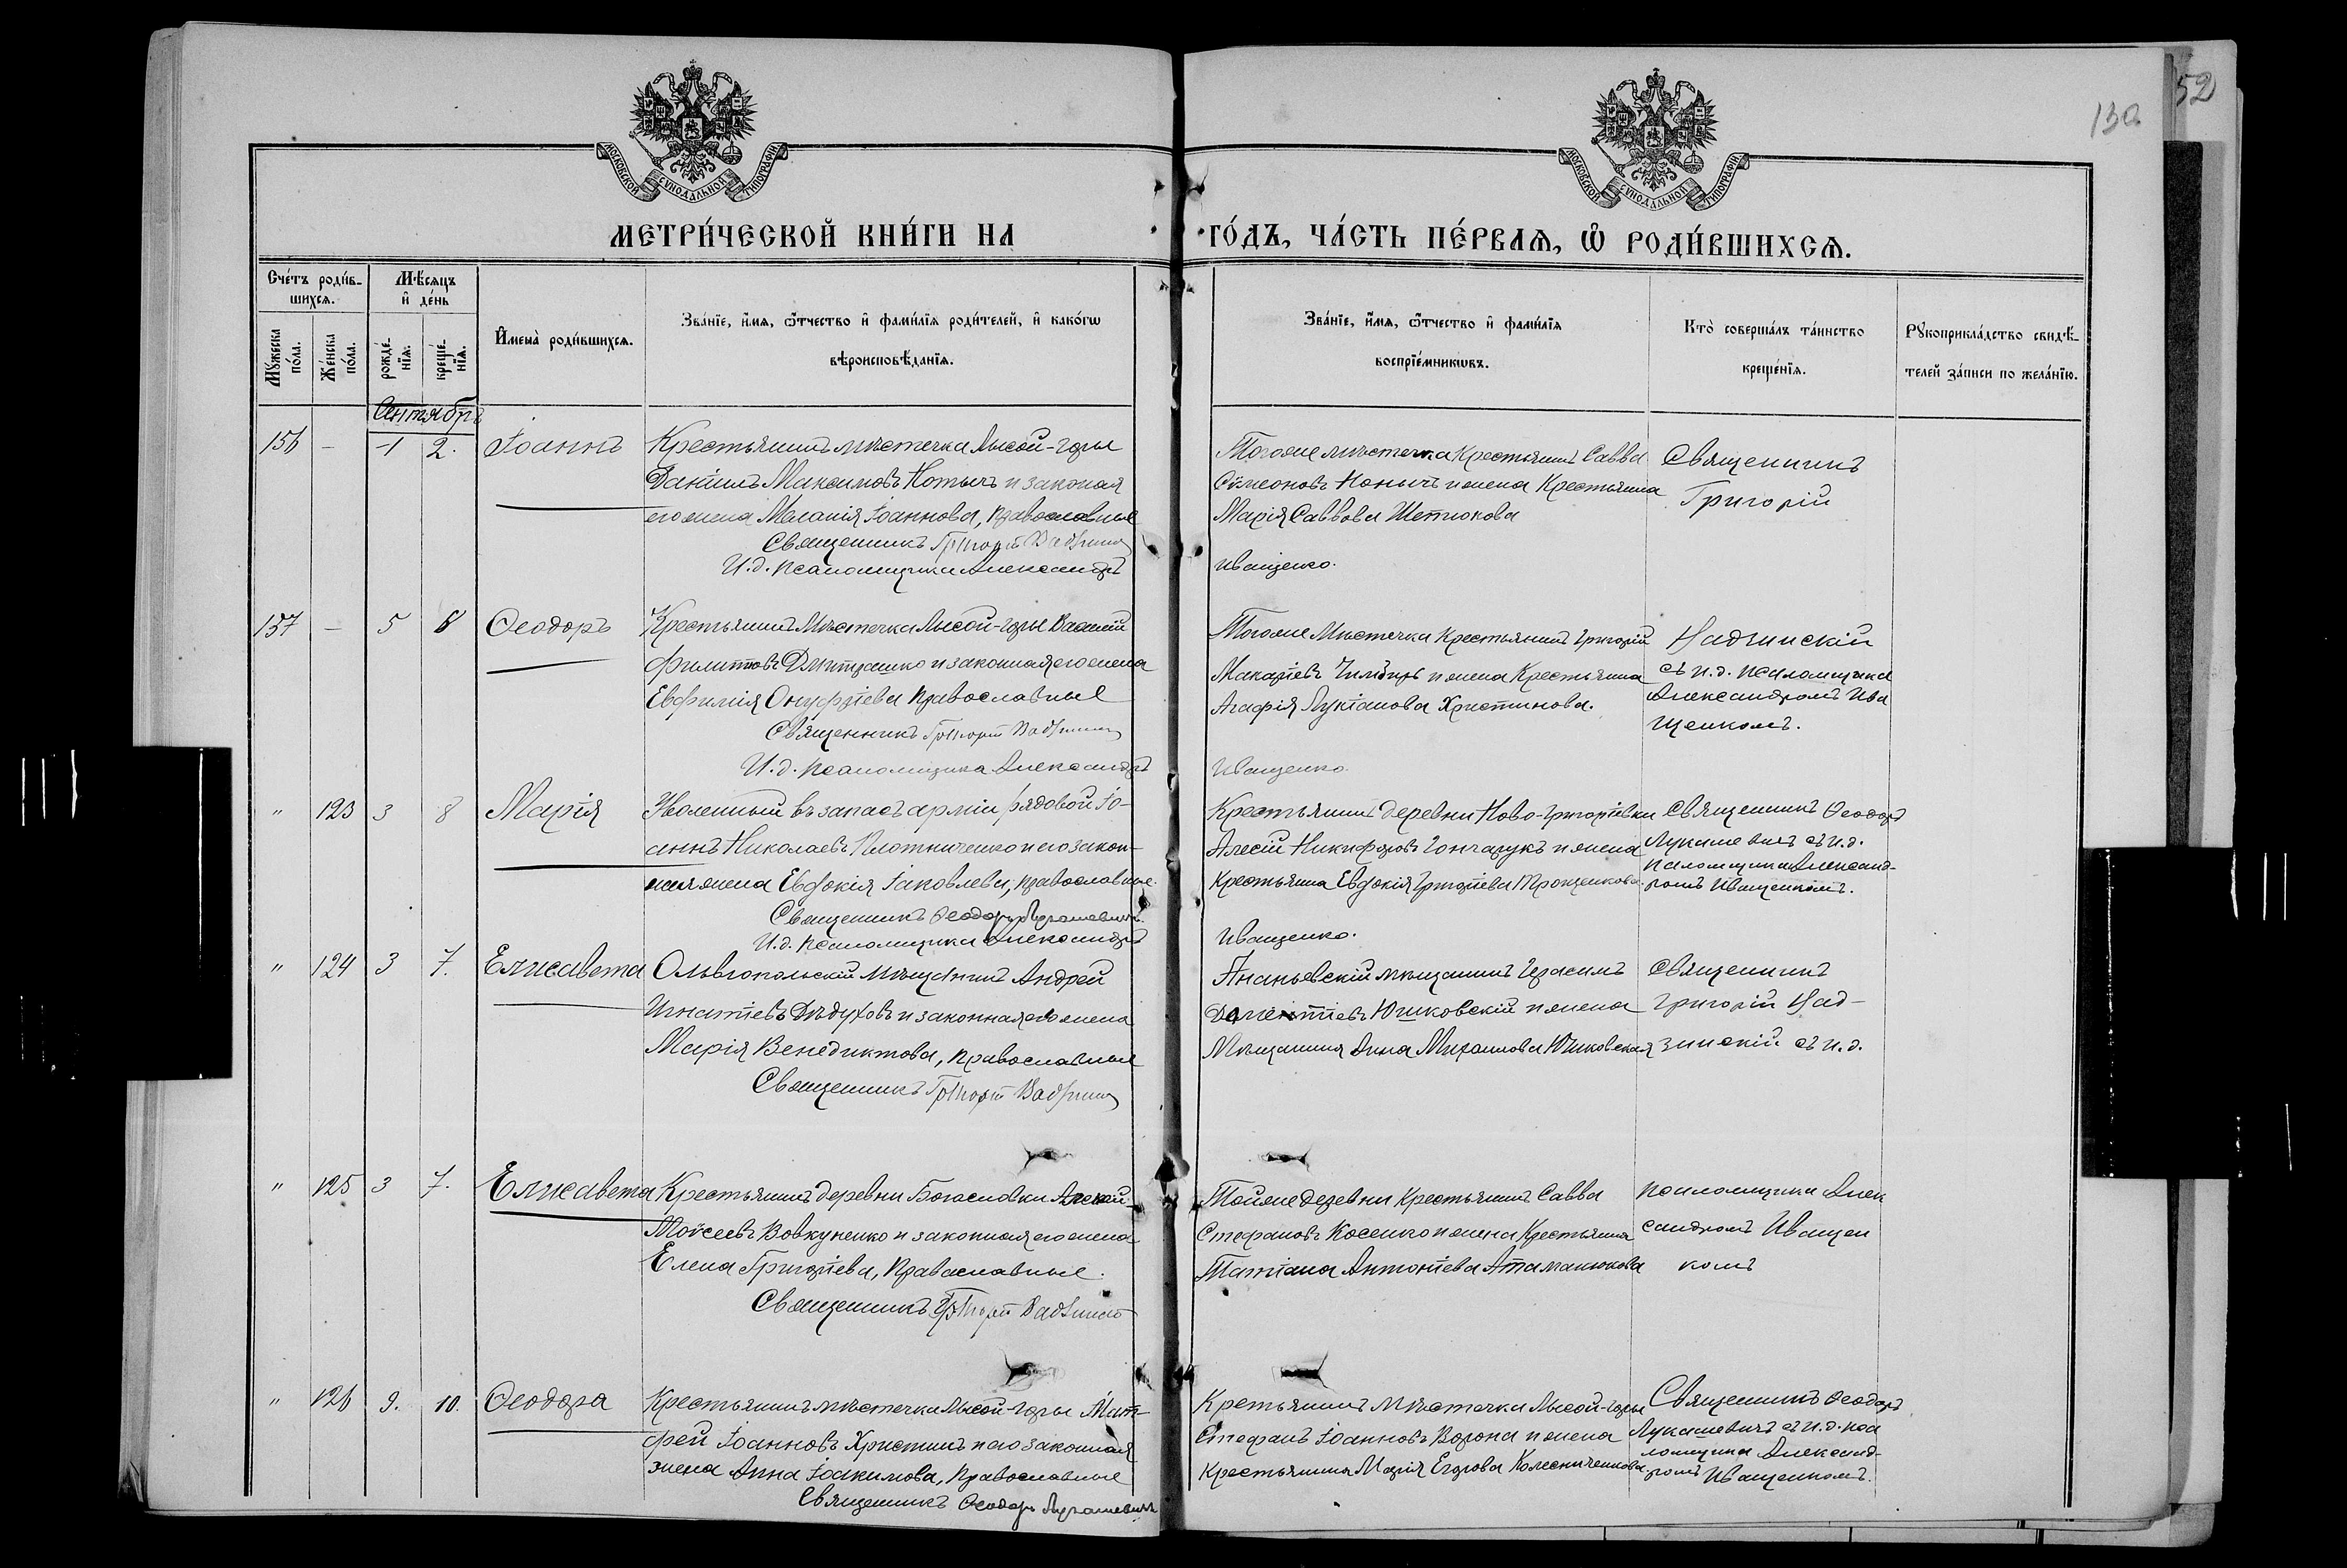 52
130
МОСКОВСКОЙ СУНОДАЛЬНОЙ ТИПОГРАФІИ
МОСКОВСКОЙ СУНОДАЛЬНОЙ ТИПОГРАФІИ
МЕТРИ́ЧЕСКОЙ КНИ́ГИ НА ГО́ДЪ, ЧА́СТЬ ПЕ́РВАѦ, Ѡ҆ РОДИ́ВШИХСѦ.
Сче́тъ роди́в-
шихсѧ.
Мѣ́сѧцъ
и҆ де́нь
Мꙋ́жеска
по́ла.
Же́нска
по́ла.
рожде́-
нїѧ.
креще́-
нїѧ.
И҆мена̀ роди́вшихсѧ.
Зва́нїе, и҆́мѧ, ѻ҆́тчество и҆ фами́лїѧ роди́телей, и҆ како́гѡ
вѣроисповѣ́данїѧ.
Зва́нїе, и҆́мѧ, ѻ҆́тчество и҆ фами́лїѧ
воспрїе́мникѡвъ.
Кто̀ соверша́лъ та́инство
креще́нїѧ.
Рꙋкоприкла́дство свидѣ́-
телей за́писи по жела́нїю.
Сентябрь
156 - 1 2. Іоаннъ
Крестьянинъ мѣстечка Лысой-горы
Даніилъ Максимовъ и законая
его жена Меланія Іоаннова, православные
Священникъ Григорій
И.д. псаломщика Александръ
Тогоже мѣстечка крестьянинъ Савва
Сѵмеоновъ и жена крестьянина
Марія Саввова
Иващенко.
Священникъ
Григорій
157 - 5 8 Ѳеодоръ
Крестьянинъ Мѣстечка Лысой-горы Василій
Филипповъ Дмитрашко и законная его жена
Евфимія Онуфріева православные
Священникъ Григорій
И.д. псаломщика Александръ
Тогоже Мѣстечка крестьянинъ Григорій
Макаріевъ и жена крестьянина
Агафія Лукіанова Христинова.
Иващенко
Надзинскій
съ и.д. псаломщика
Александромъ Ива
щенкомъ.
" 123 3 8 Марія
Уволенный въ запасъ арміи рядовой Іо-
аннъ Николаевъ Плотниченко и его закон-
ная жена Евдокія Іаковлева, православные.
Священникъ Ѳеодоръ Лукашевичъ.
И.д. псаломщика Александръ
Крестьянинъ деревни Ново-Григорьевки
Алексій Никифоровъ Гончарукъ и жена
крестьянина Евдокія Григоріева Троценкова.
Иващенко.
Священникъ Ѳеодоръ
Лукашевичъ съ и.д.
псаломщика Александ-
ромъ Иващенкомъ.
" 124 3 7. Елисавета
Ольвіопольскій мѣщанинъ Андрей
Игнатіевъ Дѣдуховъ и законная его жена
Марія Венедиктова, православные
Священникъ Григорій
Ананьевскій мѣщанинъ Герасимъ
Юшковскій и жена
Мѣщанина Анна Михаилова Юшковская
Священникъ
Григорій Над-
зинскій съ и.д.
" 125 3 7. Елисавета
Крестьянинъ деревни Богословки Алексій
Моѵсеевъ Вовкуненко и законная его жена
Елена Григоріева, православные.
Священникъ Григорій
Тойже деревни крестьянинъ Савва
Стефановъ Косенко и жена крестьянина
Татіана Антоніева Атаманюкова
псаломщика Алек
сандромъ Иващен
комъ
" 126 9. 10. Ѳеодора
Крестьянинъ мѣстечка Лысой-горы Мат-
фей Іоанновъ Христинъ и его законная
жена Анна Іоакимова, православные
Священникъ Ѳеодоръ Лукашевичъ
Кретьянинъ мѣстечка Лысой-горы
Стефанъ Іоанновъ Ворона и жена
крестьянина Марія Егорова Колесниченкова.
Священникъ Ѳеодоръ
Лукашевичъ съ и.д. пса
ломщика Александ-
ромъ Иващенкомъ.